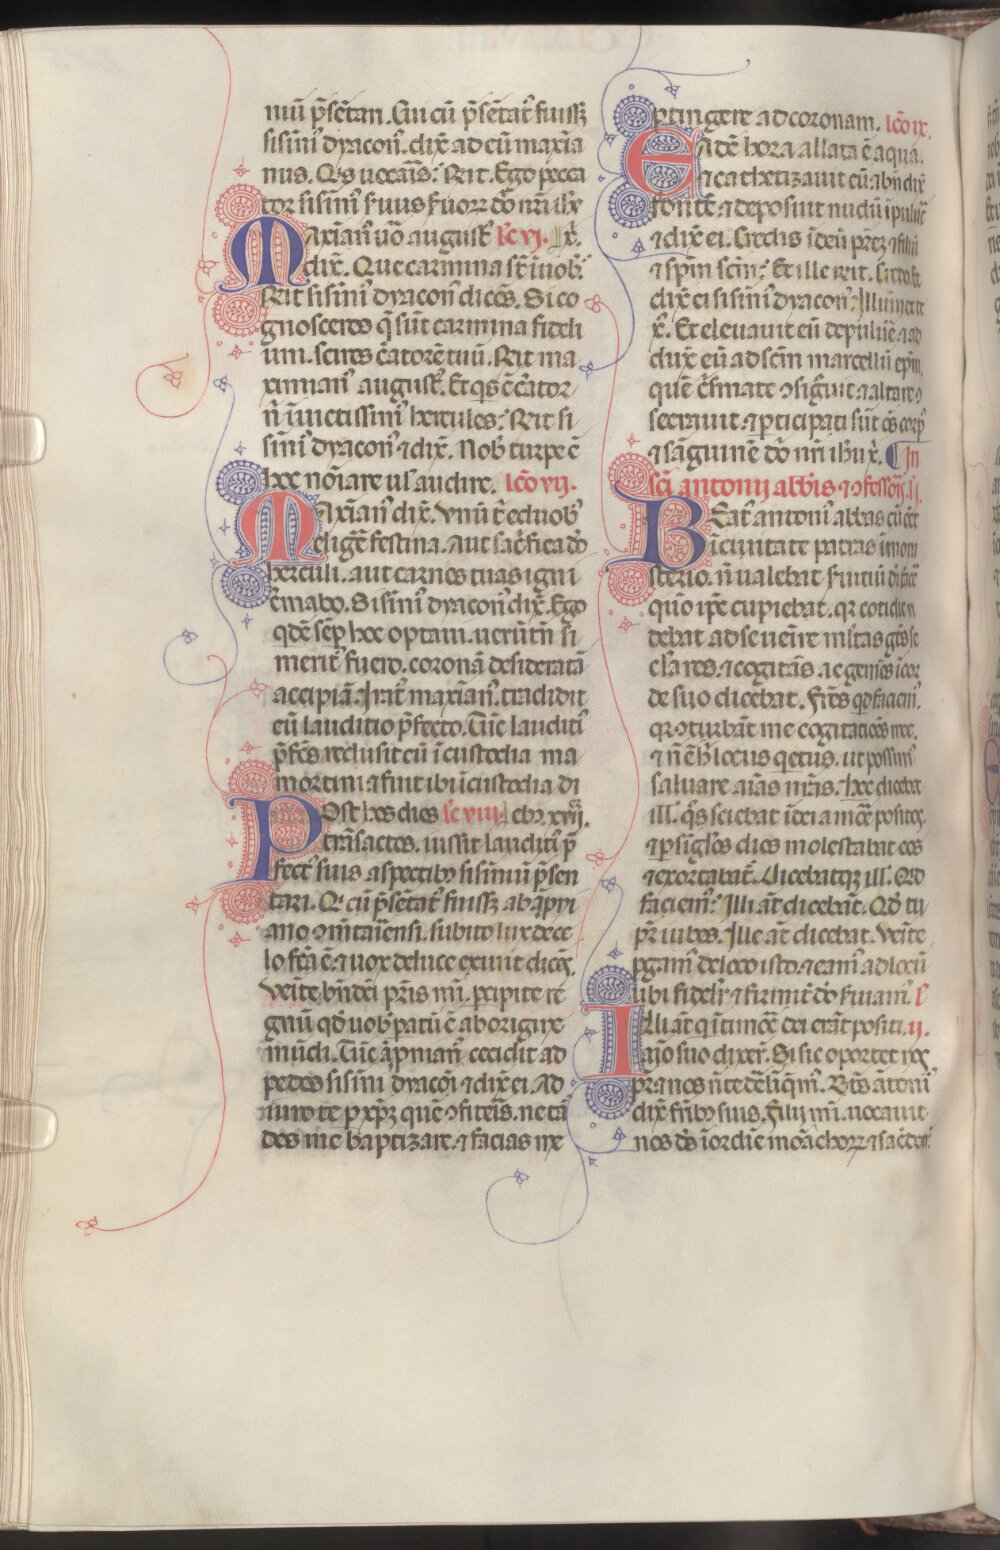 niū p̄sētari. Qui cū p̄sētat᷑ fuiss̄
sisini᷑ dyacon᷑. dix̄ ad eū maxia
nus. Q̄s vocaris: Rn̄t. Ego pecca
tor sisini᷑ s̄uus s̄uorꝝ dn̄i nr̄i ih̄u
Maxian᷑ v̄o august᷑ lc̄ vi. xp̄i.
dix̄. Que carmina st̄ in uob᷑:
Rn̄t sisini᷑ dyacon᷑ dicēs. Si co
gnosceres q̄ sūt carmina fideli
um. scires c̄atorē tuū. Rn̄t ma
ximian᷑ august᷑. Et q̄s ē c̄ator
n̄ īuictissim᷑ hercules: Rn̄t si
sini᷑ dyacon᷑ ⁊ dix̄. Nob᷑ turpe ē
hec noīare ul᷑ audire. lc̄o vij.
Maxian᷑ dix̄. Vnū t᷑ e duob᷑
elige festina. Aut sac̄fica deo
herculi. aut carnes tuas igni
c̄mabo. Sisini᷑ dyacon᷑ dix̄. Ego
qdē sēp hec optaui. uerūtn̄ si
merit᷑ fuero. coronā desideratā
accipiā. Irat᷑ maxian᷑. tradidit
eū lauditio p̄fecto. Tūc laudici᷑
p̄fēs reclusit eū ī custodia ma
mortini ⁊ fuit ibi ī custodia di
Post hos dies lc̄ viij. eb᷑ xvij.
trāsactos. iussit laudici᷑ p̄
fect᷑ suis aspectibꝰ sisiniū p̄sen
tari. Q̄ cū p̄sētat᷑ fuiss̄ ab apro
niano om̄itariensi. subito lux de ce
lo fc̄a ē. ⁊ vox de luce exiuit dicēs.
Venite bn̄dc̄i pr̄is mi. pcipite re
gnū qd̄ uob᷑ patū ē ab origine
mūdi. Tūc apronian᷑ cecidit ad
pedes sisini dyacōi ⁊ dix̄ ei. Ad
iuro te p xp̄m quē ofiteris. ne tar
des me baptizare. ⁊ facias me
ptingere ad coronam. lc̄o ix.
Eadē hora allata ē aqua.
⁊ cathetizauit eū ⁊ bn̄dix̄
fontē. ⁊ deposuit nudū ī peluim
⁊ dix̄ ei. Credis ī deū patrē ⁊ filiū
⁊ sp̄m scm̄: Et ille rn̄t. Credo. Et
dix̄ ei sisini᷑ dyacon᷑. Illuminet te
xp̄c. Et eleuauit eū de peluim ⁊ ad
duxit eū ad scm̄ marcellū ep̄m.
quē c̄smate osigūit ⁊ altare o
secrauit ⁊ pticipati sūt oēs corp᷑
⁊ sāguinē dn̄i nr̄i ih̄u xp̄i. ¶ In
scī antonij abbīs ⁊ ofessoris. lc̄ i.
Beat᷑ antoni᷑ abbas cū ēet
ī ciuitate patras ī mona
sterio. n̄ ualebat s̄uitiū dei facere
quō ipē cupiebat. qr cotidie vi
debat ad se uenīre multas gētes se
clares. ⁊ cogitās ac gemēs ī cor
de suo dicebat. Frēs qd faciem᷑.
qr oturbāt me cogitatiōes mee.
⁊ n̄ ē h̄ locus qetus. ut possim᷑
saluare aīas nr̄as. Hec dicebat
ill᷑. q̄s sciebat ī dei amore positos.
⁊ p sīglos dies molestabat eos
⁊ exortabat᷑. Dicebatqꝫ ill᷑. Qd
faciem᷑: Illi at̄ dicebāt. Qd tu
pr̄ iubes. Ille at̄ dicebat. Venite
pgam᷑ de loco isto. ⁊ eam᷑ ad locū
ubi fidelr̄ ⁊ firmit᷑ deo s̄uiam᷑. lc̄
Illi at̄ q ī timore dei erāt positi. ii.
aīo suo dixer̄t. Si sic oportet nos
pr̄ a nos n̄ te delinqm᷑. Bt̄us antoni᷑
dix̄ fribꝰ suis. Filij mi. uocauit
nos ds̄ ī ordīe monachorꝝ ⁊ sacerdot᷑